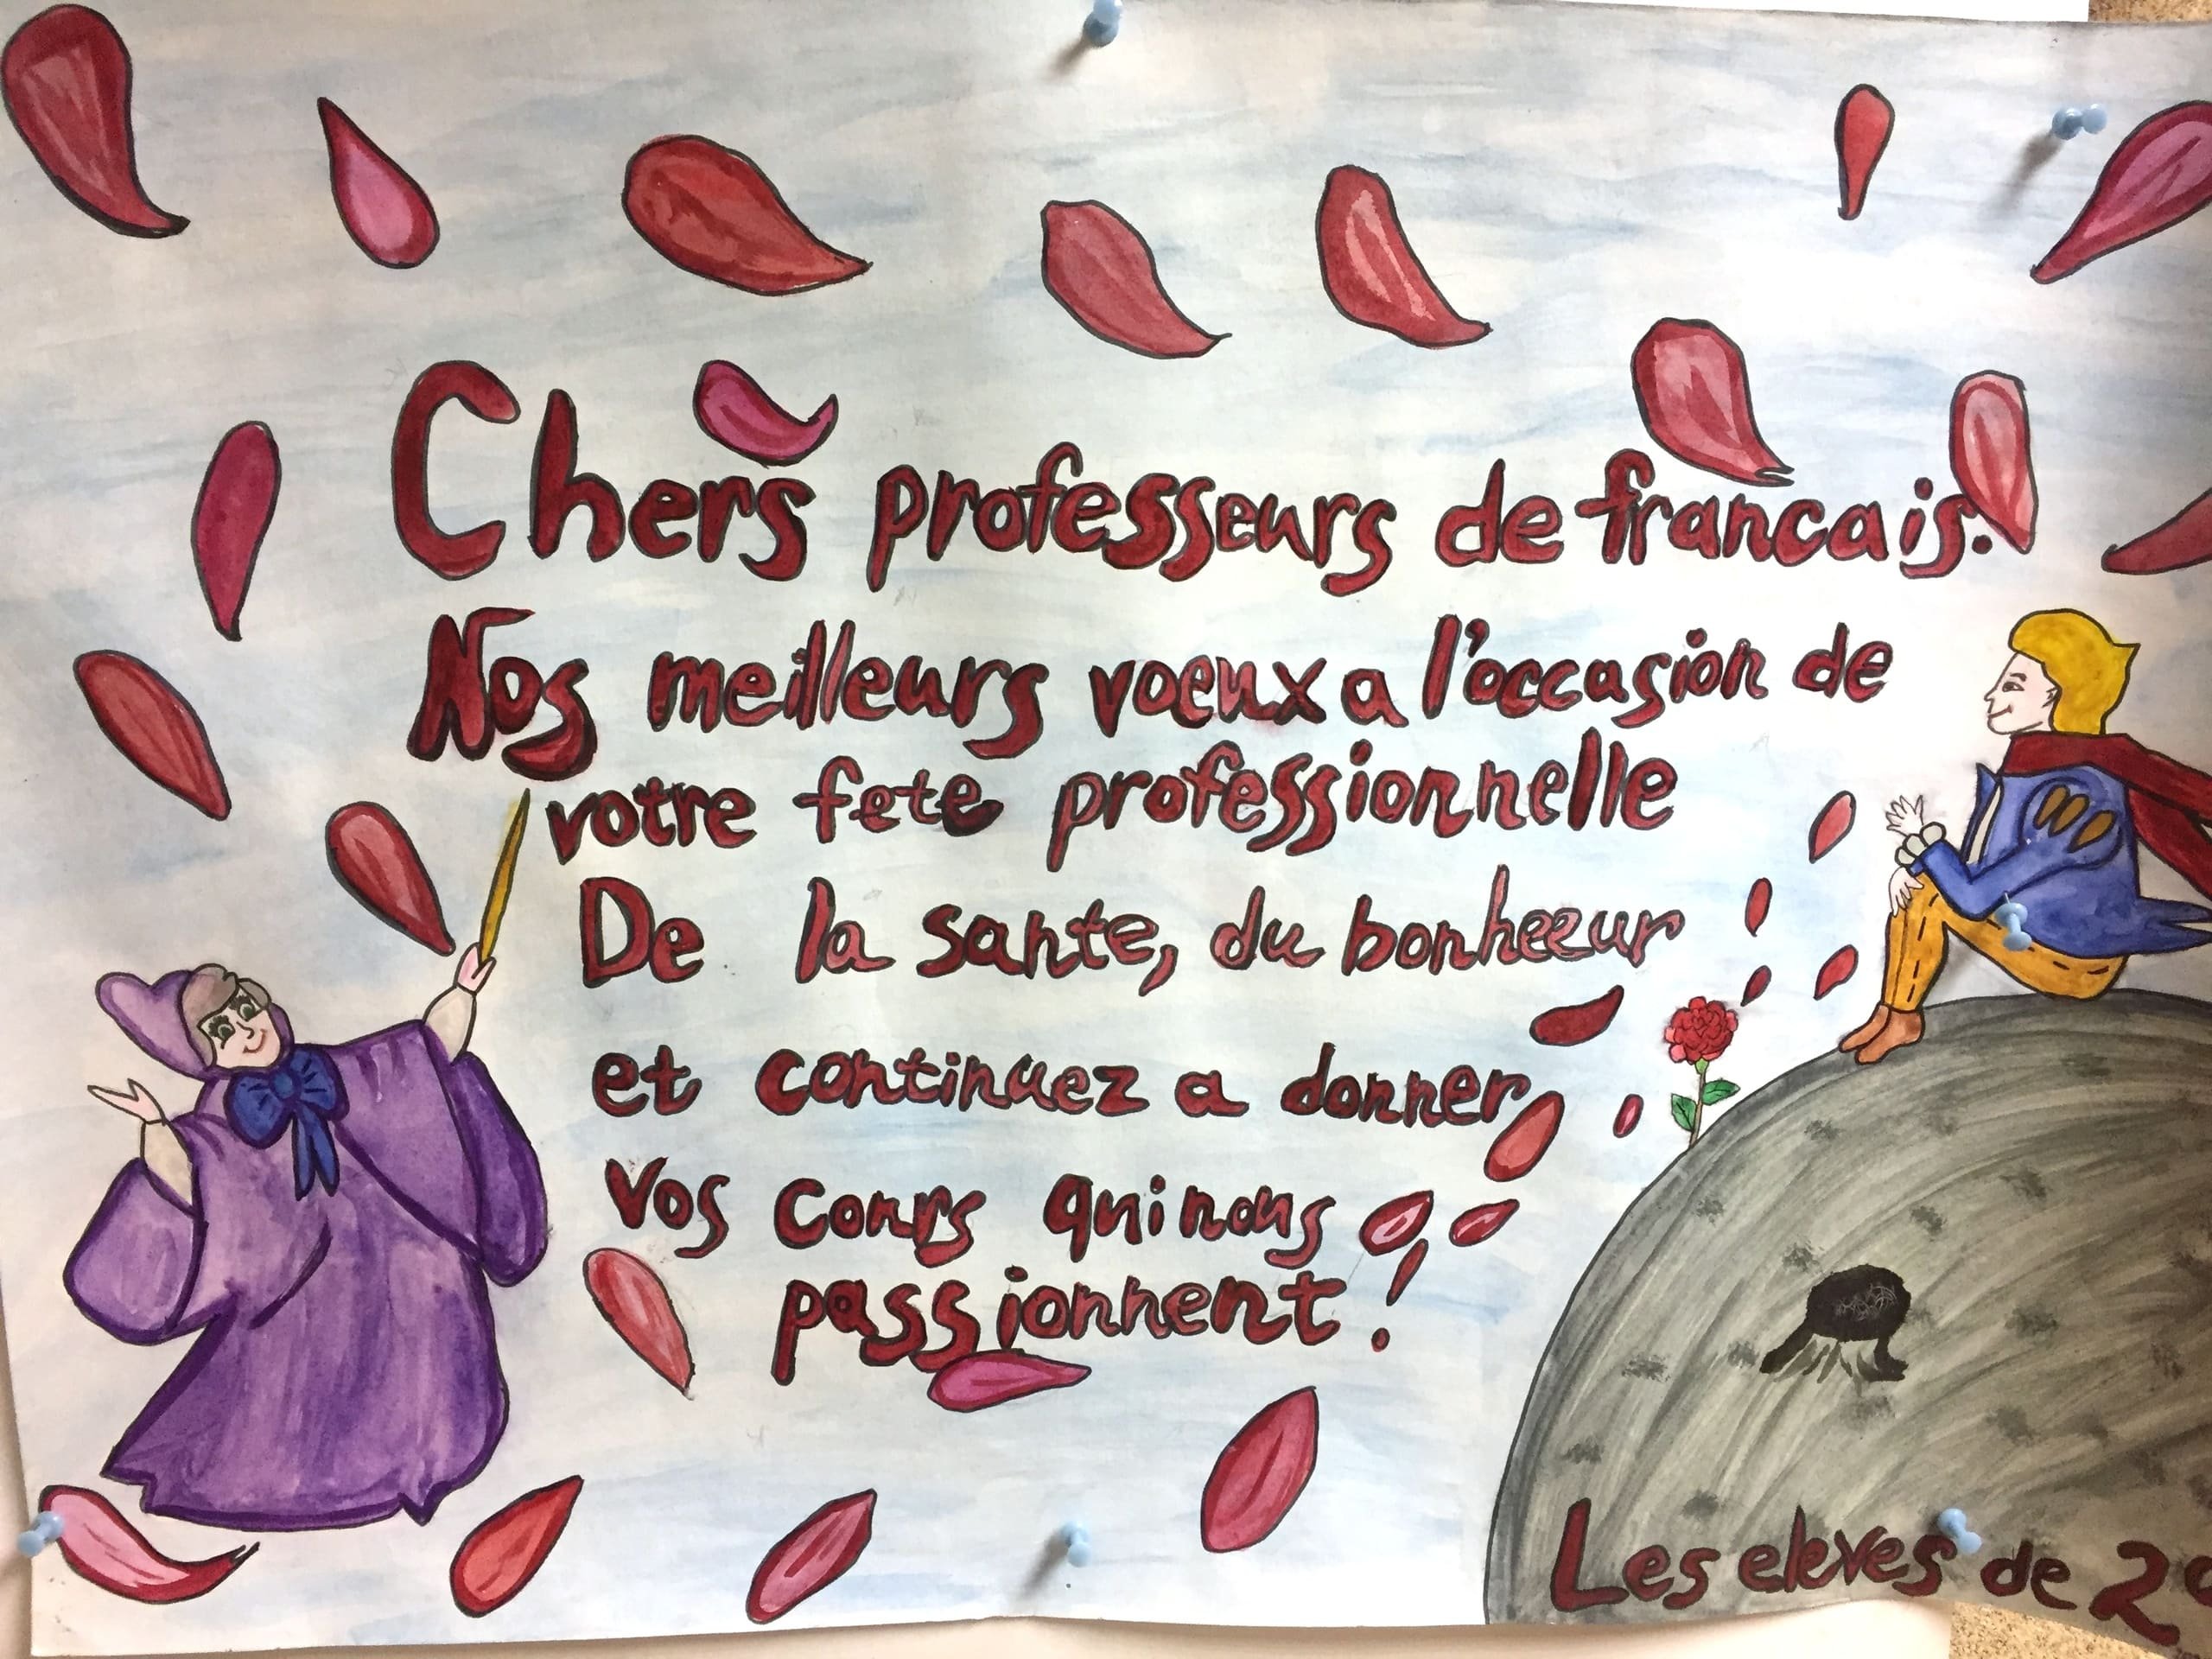 Chers professeurs de francais.
Nos meilleurs voeux a l'occasion de
votre fete professionnelle
De la sante, du bonheeur
et continuez a donner
Vos cours qui nous
passionnent!
Les eleves de